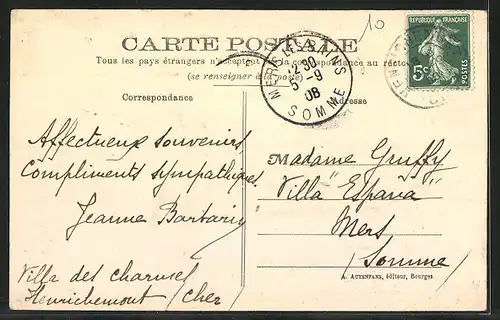 10
CARTE POSTALE
Tous les pays étrangers n'acceptent pas la correspondance au recto
(se renseigner à la poste)
Correspondance
Adresse
MERS LES BAINS
2 30
5 - 9
08
SOMME
REPUBLIQUE FRANÇAISE
5c
POSTES
Affectueux souvenirs
Compliments sympathiques.
Jeanne Barbarin
Villa des charmes
Henrichemont (Cher)
Madame Gruffy
Villa "España"
Mers
(Somme)
A. AUXENFANS, éditeur, Bourges